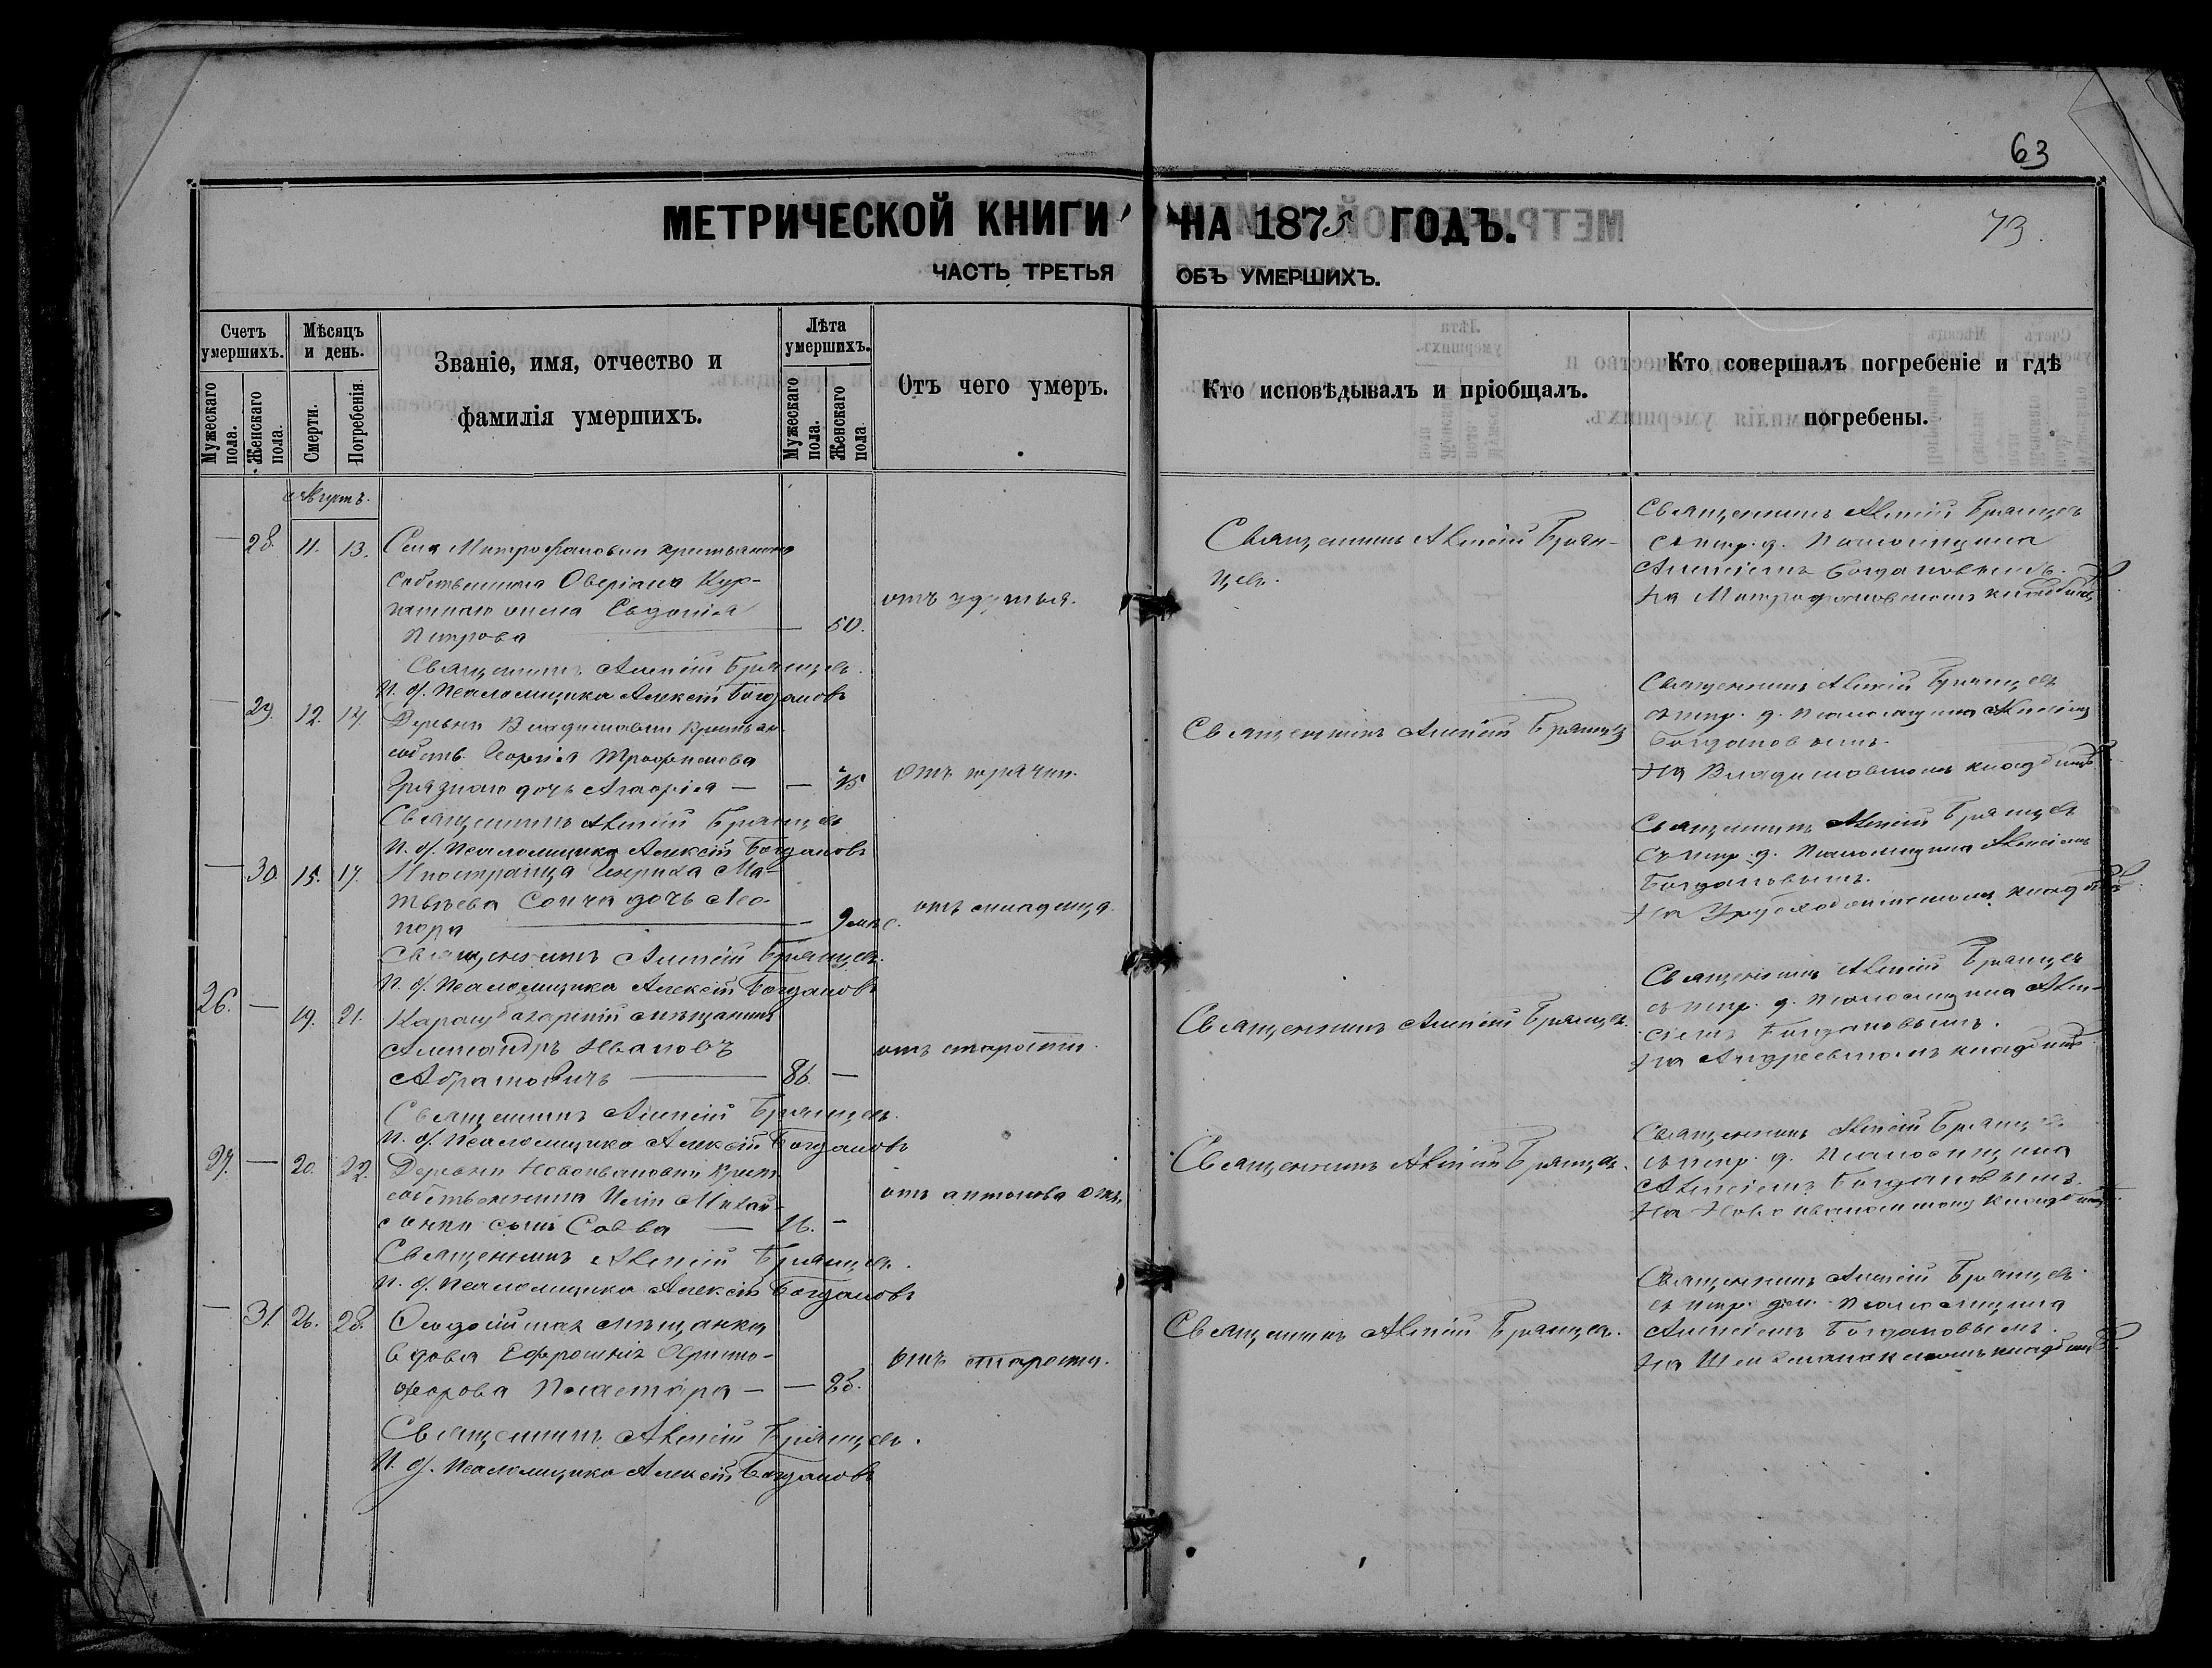 63
73.
МЕТРИЧЕСКОЙ КНИГИ НА 1875 ГОДЪ.
ЧАСТЬ ТРЕТЬЯ ОБЪ УМЕРШИХЪ.
Счетъ умершихъ.
Мужескаго пола.
Женскаго пола.
Мѣсяцъ и день.
Смерти.
Погребенія.
Званіе, имя, отчество и
фамилія умершихъ.
Лѣта умершихъ.
Мужескаго пола.
Женскаго пола
Отъ чего умеръ.
Кто исповѣдывалъ и пріобщалъ.
Кто совершалъ погребеніе и гдѣ
погребены.
Августъ.
— 28. 11. 13. Села Митрофановки крестьянина
собственника Оверіана Кур-
жена Евдокія
Петрова — 50.
отъ удушья.
Священникъ Алексій Брян-
цевъ.
Священникъ Алексій Брянцевъ
съ испр. д. Псаломщика
Алексіемъ Богдановымъ.
На Митрофановскомъ кладбищѣ
Священникъ Алексій Брянцевъ.
И. д. Псаломщика Алексѣй Богдановъ
— 29. 12. 14. Деревни Владимовки крестьян.
собств. Георгія Трофимова
Грязнаго дочь Агафія — — 15
отъ горячки.
Священникъ Алексій Брянцевъ
Священникъ Алексій Брянцевъ
съ испр. д. Псаломщика Алексіемъ
Богдановымъ.
На Владимовскомъ кладбищѣ.
Священникъ Алексій Брянцевъ
И. д. Псаломщика Алексѣй Богдановъ
— 30. 15. 17. Иностранца Генриха Ма-
твѣева дочь Лео-
нора — — 9 мѣс.
отъ младенца.
Священникъ Алексій Брянцевъ
съ испр. д. Псаломщика Алексіемъ
Богдановымъ.
На кладбищѣ.
Священникъ Алексій Брянцевъ.
И. д. Псаломщика Алексѣй Богдановъ
26. — 19. 21. Карасубазарскій мѣщанинъ
Александръ Ивановъ
Абрамовичъ — 86. —
отъ старости.
Священникъ Алексій Брянцевъ.
Священникъ Алексій Брянцевъ
съ испр. д. Псаломщика Алек-
сіемъ Богдановымъ.
На Андреевскомъ кладбищѣ
Священникъ Алексій Брянцевъ.
И. д. Псаломщика Алексѣй Богдановъ
27. — 20. 22. Деревни Новоивановки крест.
собственника Иліи
сынъ Савва — 26. —
отъ антонова огня.
Священникъ Алексій Брянцевъ.
Священникъ Алексій Брянцевъ
съ испр. д. Псаломщика
Алексіемъ Богдановымъ.
На Новоивановскомъ кладбищѣ
Священникъ Алексій Брянцевъ.
И. д. Псаломщика Алексѣй Богдановъ
— 31. 26. 28. Ѳеодосійская мѣщанка
вдова Ефросинія Христо-
форова — — 86.
отъ старости.
Священникъ Алексій Брянцевъ.
Священникъ Алексій Брянцевъ
съ испр. дол. Псаломщика
Алексіемъ Богдановымъ.
На кладбищѣ
Священникъ Алексій Брянцевъ.
И. д. Псаломщика Алексѣй Богдановъ